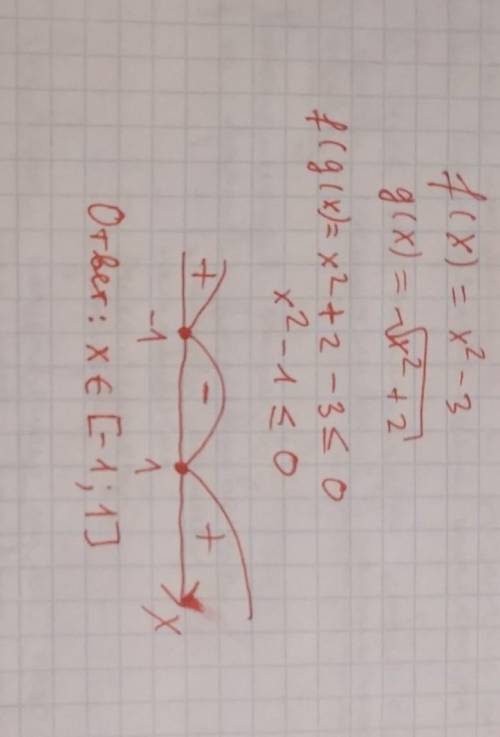 f(x) = x² - 3
g(x) = √x² + 2
f(g(x) = x² + 2 - 3 ≤ 0
x² - 1 ≤ 0
+ - +
-1 1 x
Ответ: x ∈ [-1; 1]